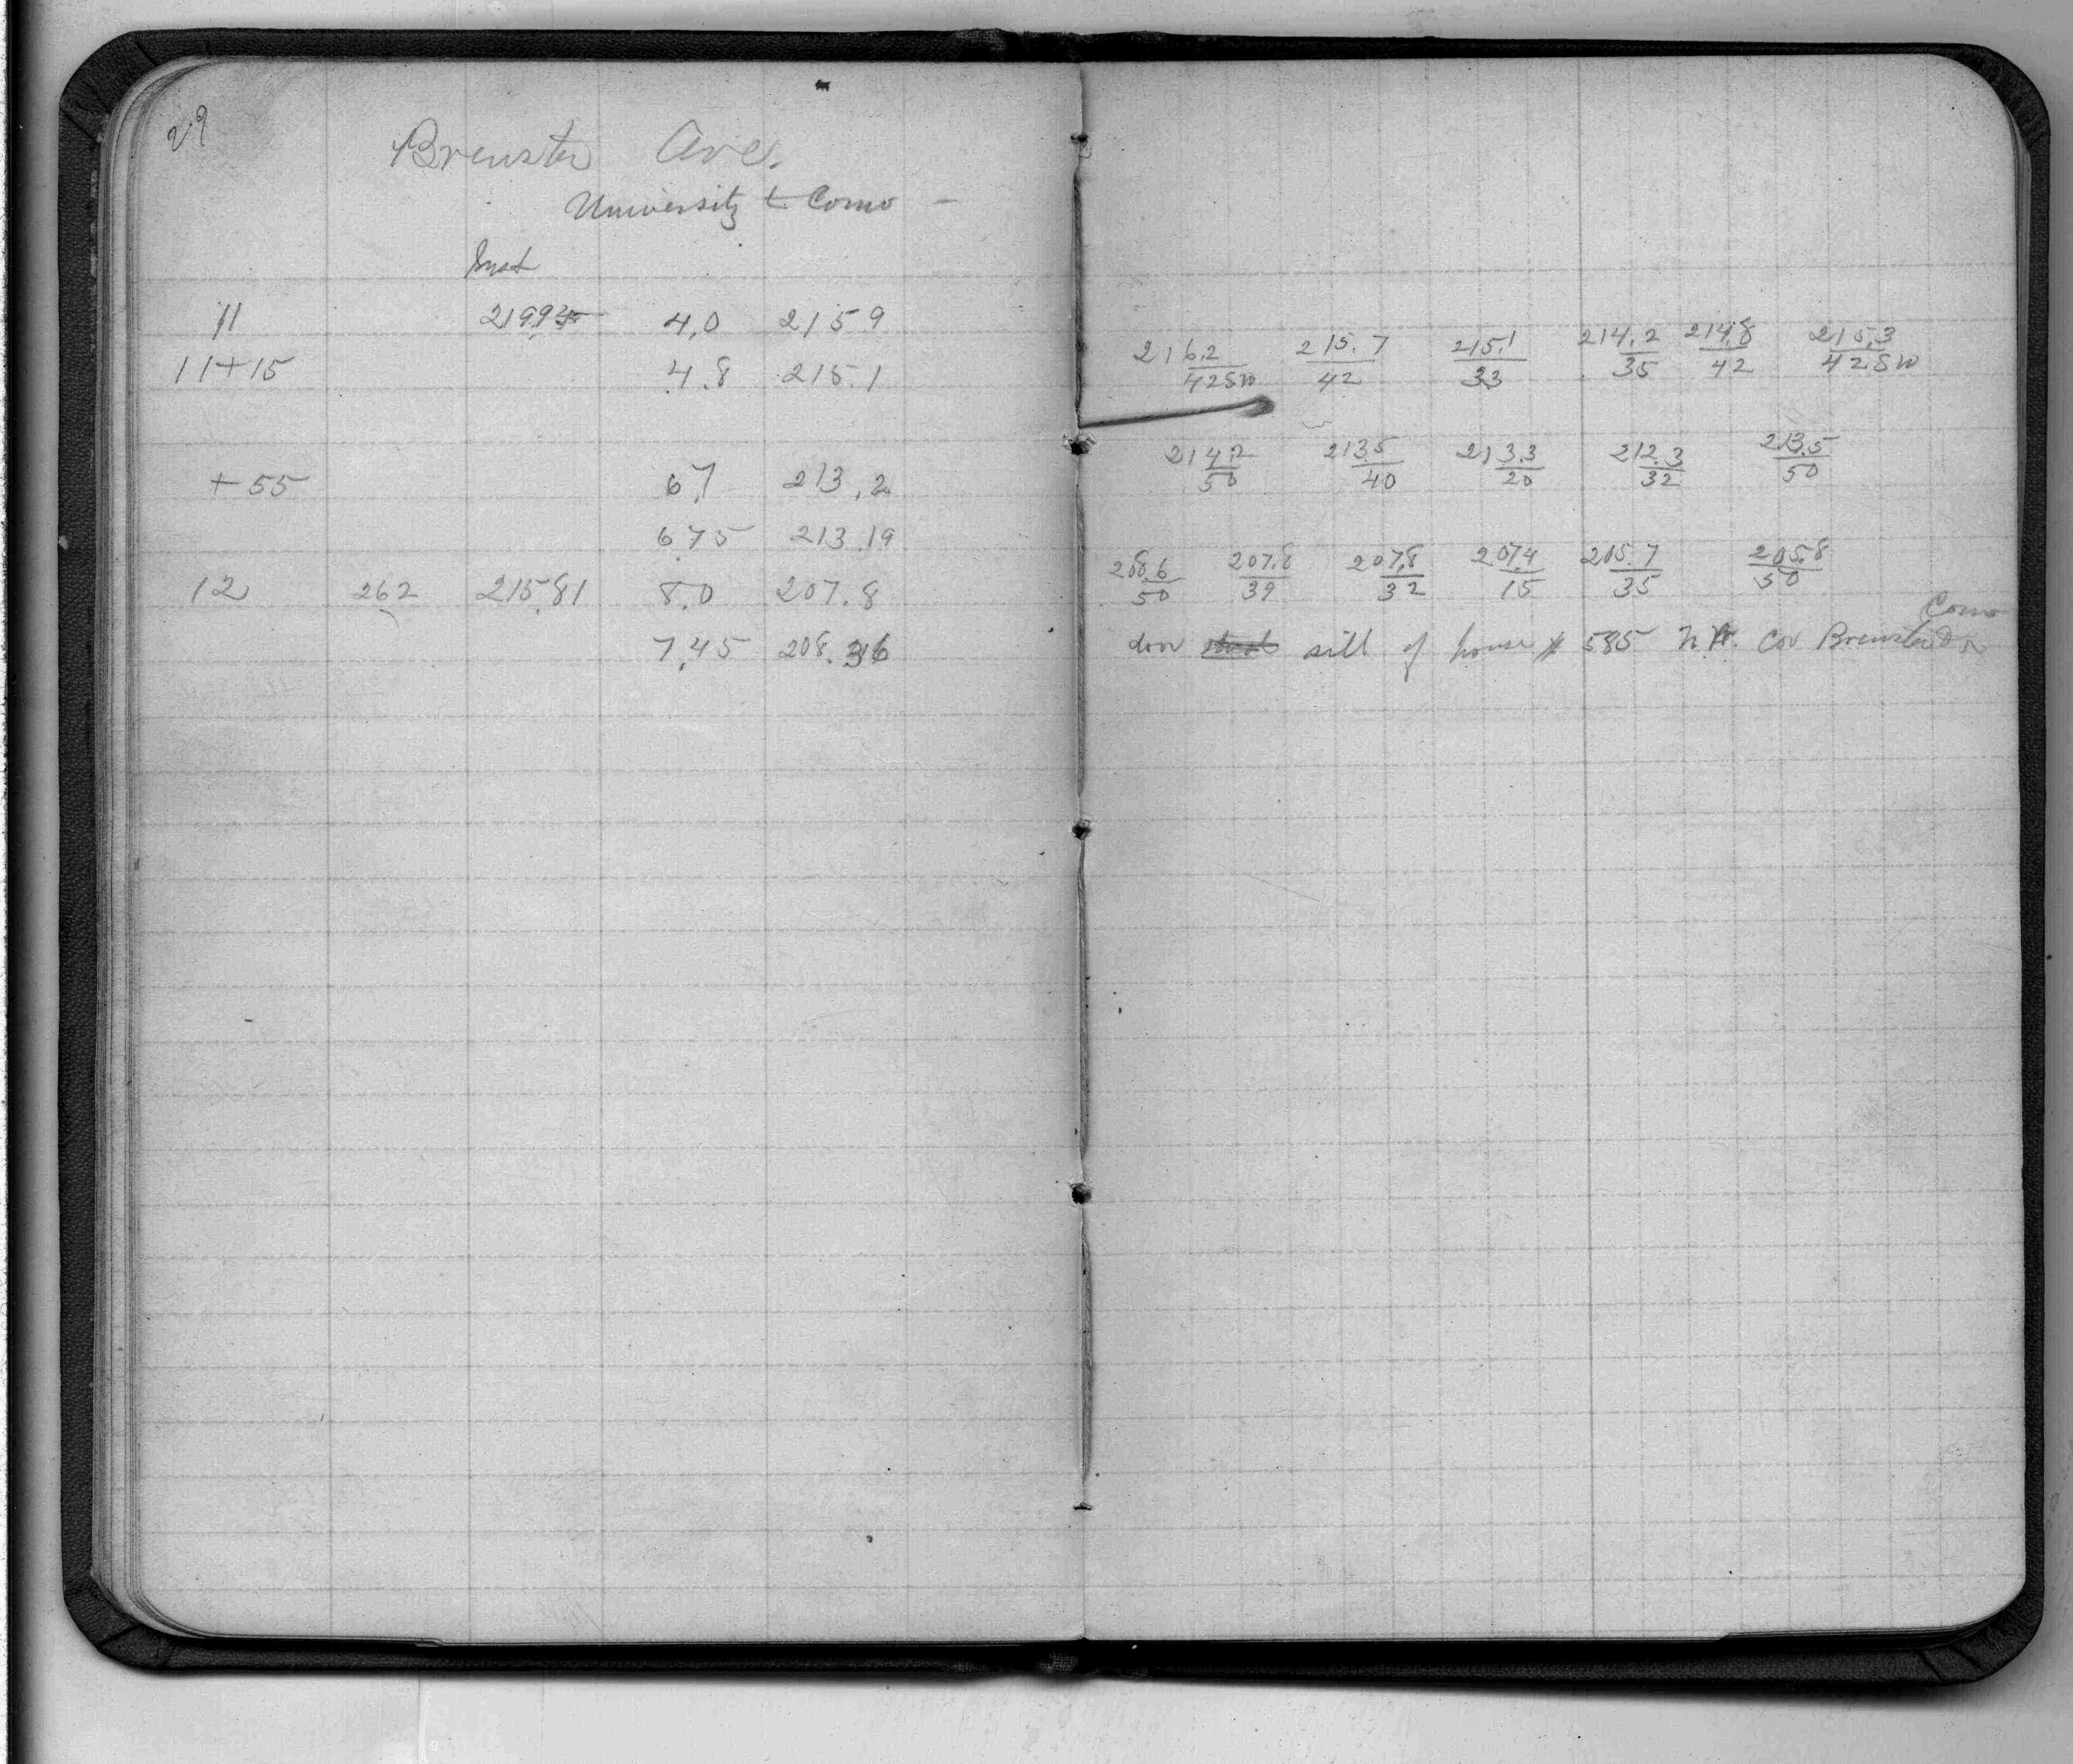 29
Brewster Ave.
University & Como -
Inst
11 219.94 4.0 215 9
11+15 4.8 215.1
+55 6.7 213.2
6.75 213.19
12 262 215.81 8.0 207.8
7.45 208.36
216.2/42SW 215.7/42 215.1/33 214.2/35 214.8/42 215.3/42SW
214.2/50 213.5/40 213.3/20 212.3/32 213.5/50
208.6/50 207.8/39 207.8/32 207.4/15 205.7/35 205.8/50
Como
door sill of house # 585 Cor Brewster &